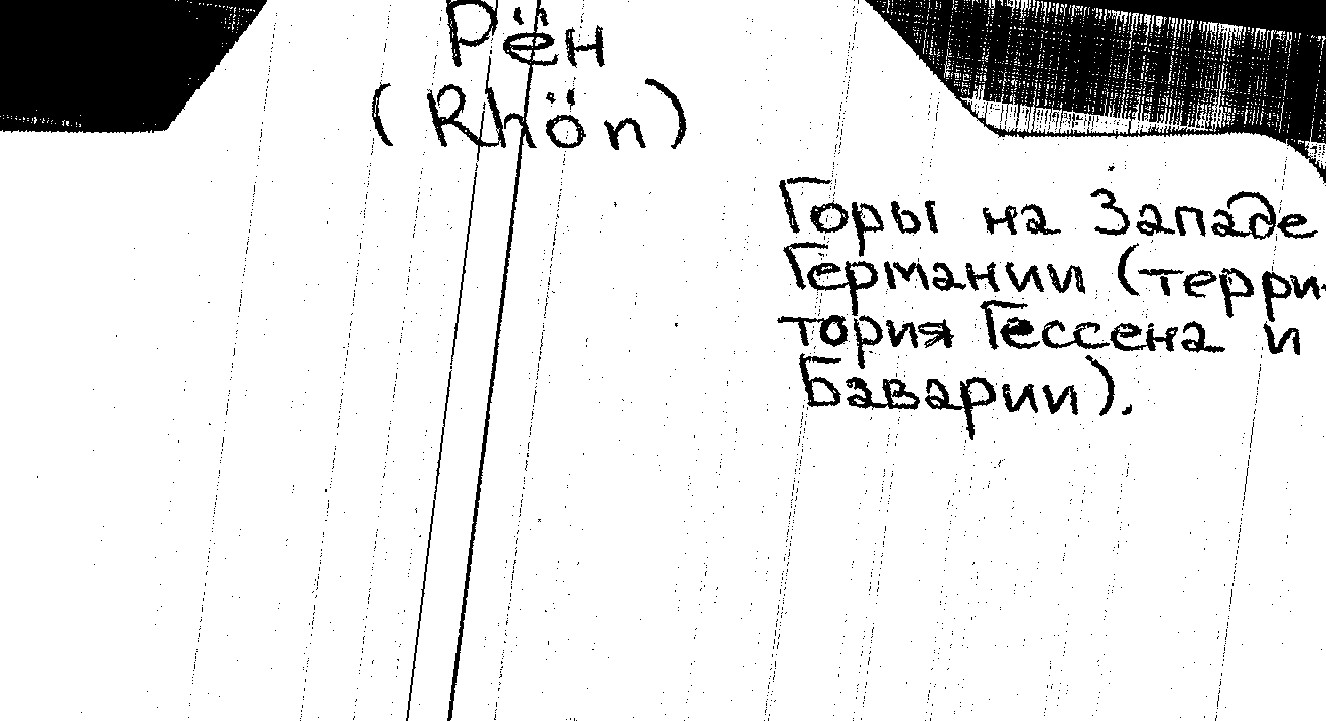 Рён
(Rhön)
Горы на Западе
Германии (терри-
тория Гессена и
Баварии).